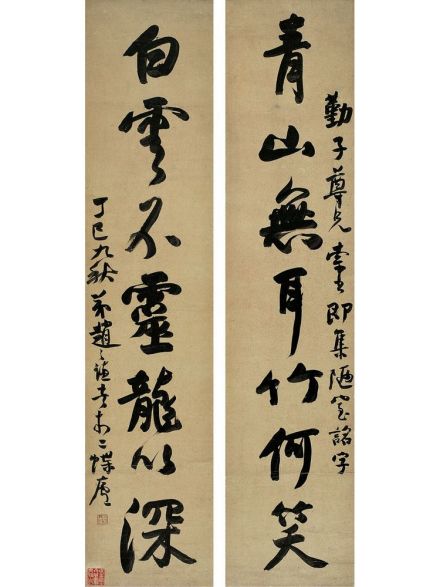 勤子尊兄索書即集陋室銘字
青山無耳竹何笑
白雲不靈龍以深
丁巳九秋弟趙之謙書於二蝶廬